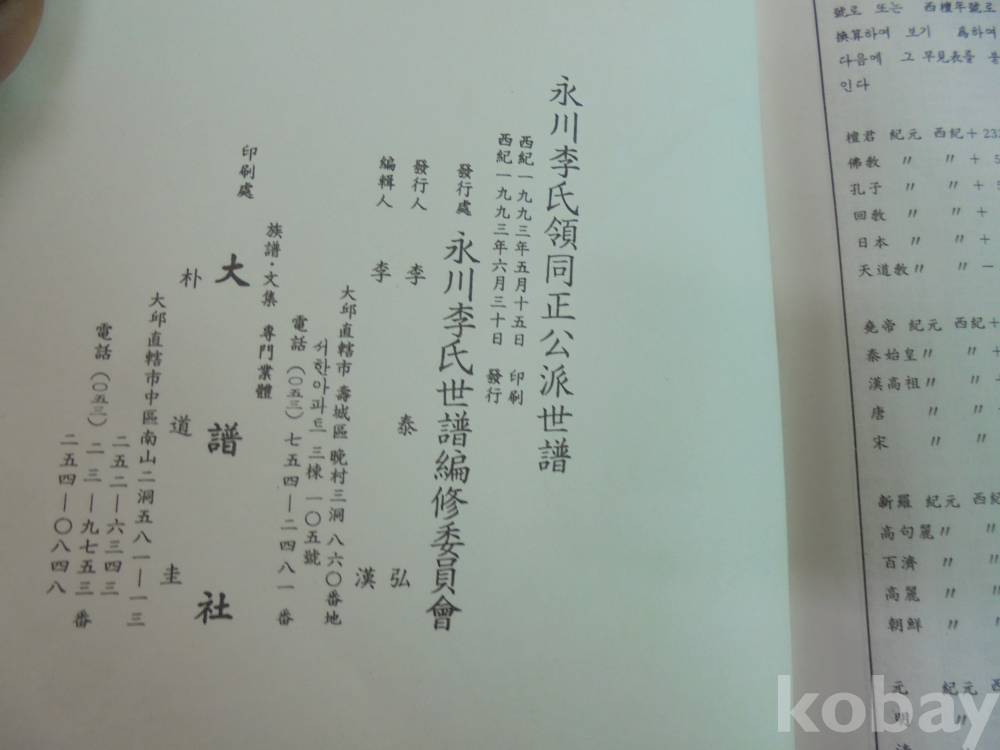 永川李氏領同正公派世譜
西紀一九九三年五月十五日 印刷
西紀一九九三年六月三十日 發行
發行處 永川李氏世譜編修委員會
發行人 李 泰 弘
編輯人 李 漢
大邱直轄市 壽城區 晩村三洞 八六〇番地
서한아파트 三棟 一〇五號
電話 (〇五三) 七五四—二四八一 番
族譜·文集 專門業體
印刷處 大 譜 社
朴 道 圭
大邱直轄市中區南山二洞五八一—一三
電話 (〇五三) 二五二—六三四三
二三—九七五三 番
二五四—〇八四八
號로 또는 西檀年號로
換算하여 보기 爲하여
다음에 그 早見表를 붙
인다
檀君 紀元 西紀+233
佛敎 〃 〃 + 5
孔子 〃 〃 + 5
回敎 〃 〃 +
日本 〃 〃 +
天道敎 〃 〃 −
堯帝 紀元 西紀+
秦始皇 〃 〃 +
漢高祖 〃 〃 +
唐 〃 〃
宋 〃 〃
新羅 紀元 西紀
高句麗 〃 〃
百濟 〃 〃
高麗 〃 〃
朝鮮 〃 〃
元 紀元 西
明 〃
kobay